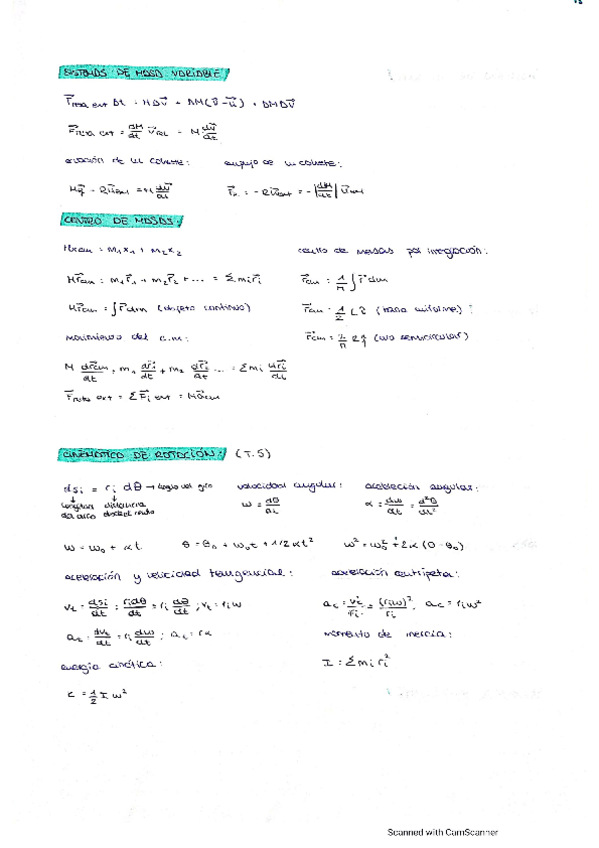 SISTEMAS DE MASA VARIABLE:
F⃗neta ext Δt = MΔv⃗ + ΔM(v⃗-u⃗) + ΔMΔv⃗
F⃗neta ext = dM/dt v⃗rel - M dv⃗/dt
ecuación de un cohete: empuje de un cohete:
Mg⃗ - Ru⃗ext = M dv⃗/dt
F⃗ = -Ru⃗ext = -|dM/dt| u⃗ext
CENTRO DE MASAS:
Mxcm = m₁x₁ + m₂x₂ centro de masas por integración:
Mr⃗cm = m₁r⃗₁ + m₂r⃗₂ + ... = Σmir⃗i r⃗cm = 1/M ∫r⃗dm
Mr⃗cm = ∫r⃗dm (objeto continuo) r⃗cm = 1/2 Lî (barra uniforme)
movimiento del c.m: r⃗cm = 2/π Rĵ (aro semicircular)
M dr⃗cm/dt = m₁ dr⃗₁/dt + m₂ dr⃗₂/dt ... = Σmi dr⃗i/dt
F⃗neta ext = ΣF⃗i ext = Ma⃗cm
CINEMÁTICA DE ROTACIÓN: (T.5)
dsi = ri dθ → ángulo del giro velocidad angular: aceleración angular:
longitud del arco distancia desde el centro ω = dθ/dt α = dω/dt = d²θ/dt²
ω = ω₀ + αt θ = θ₀ + ω₀t + 1/2 αt² ω² = ω₀² + 2α(θ-θ₀)
aceleración y velocidad tangencial: aceleración centrípeta:
vt = dsi/dt = ridθ/dt = ri dθ/dt ; vt = riω ac = vi²/ri = (riω)²/ri ; ac = riω²
at = dvt/dt = ri dω/dt ; at = rα momento de inercia:
energía cinética: I = Σmiri²
c = 1/2 I ω²
Scanned with CamScanner